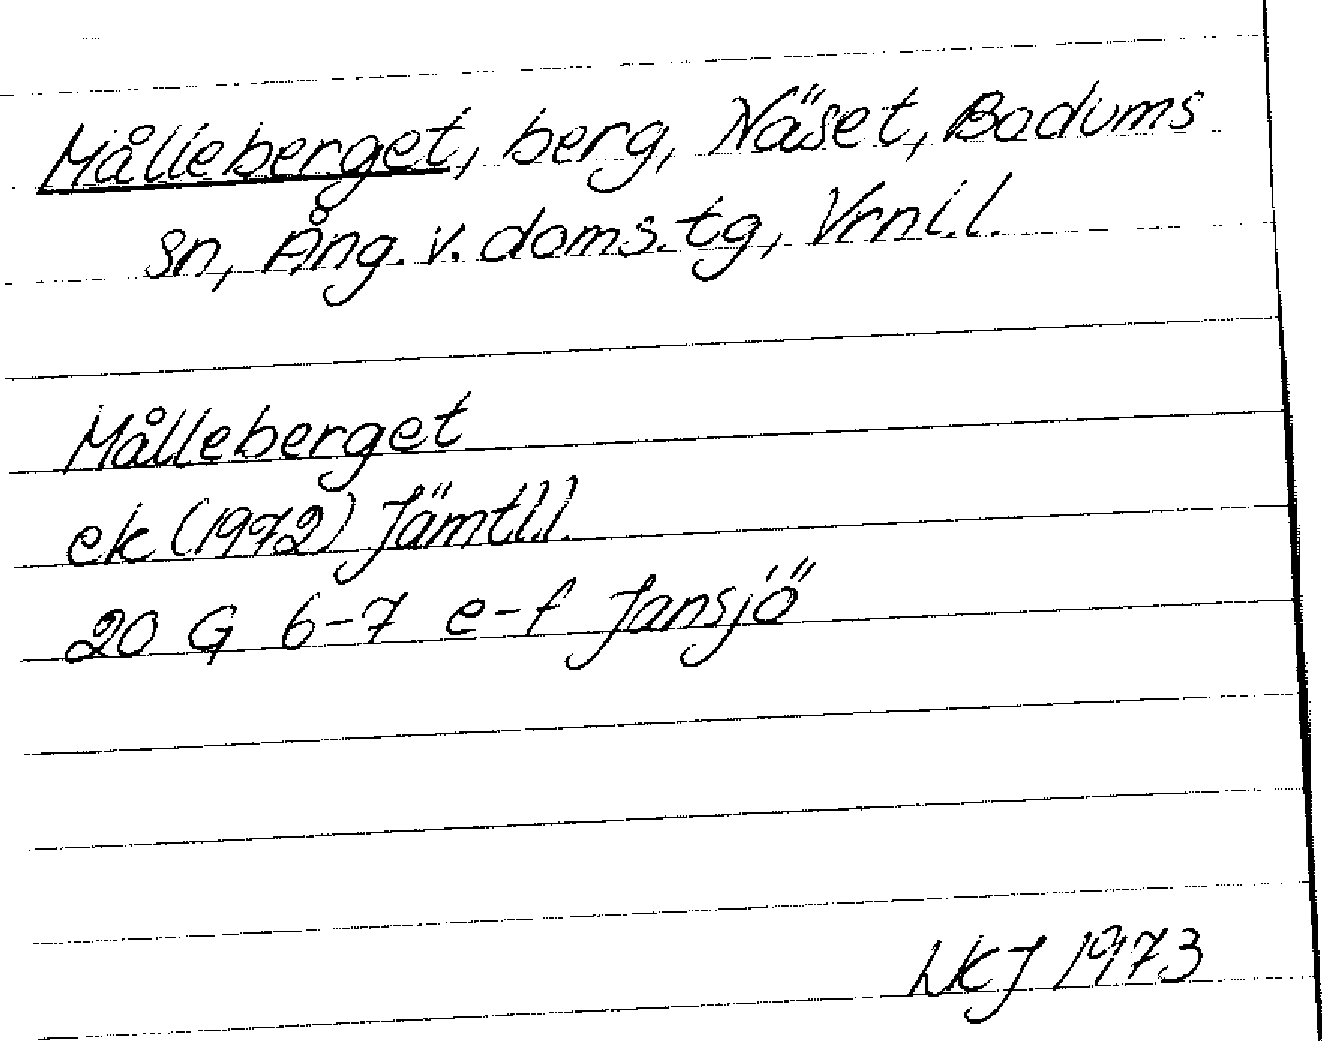 Målleberget, berg, Näset, Bodums
sn, Ång. v. doms.tg, Vrnl.l.
Målleberget
ek (1972) Jämtl.l.
20 G 6-7 e-f Jansjö
LKJ 1973